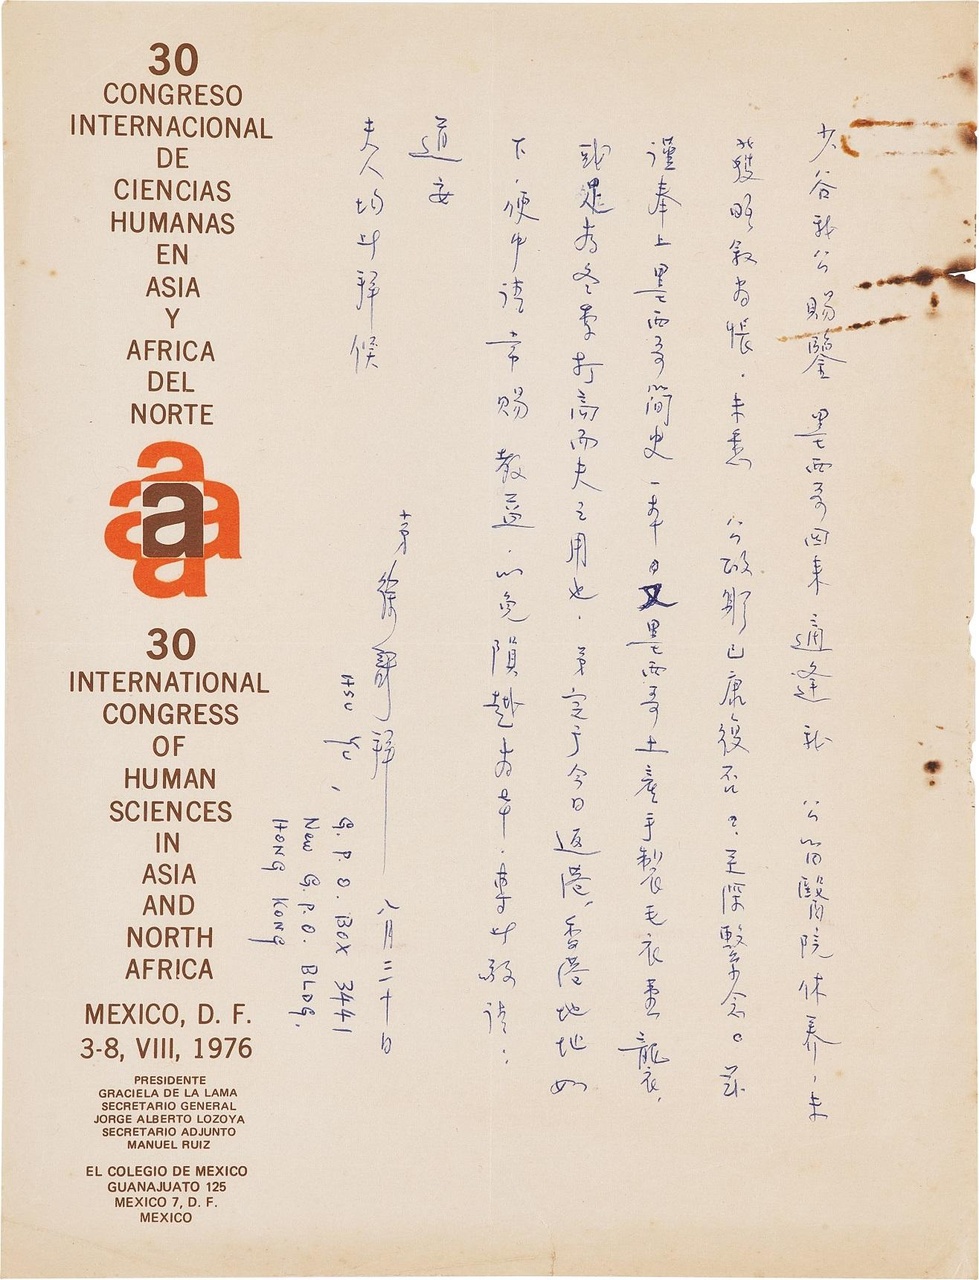 30
CONGRESO
INTERNACIONAL
DE
CIENCIAS
HUMANAS
EN
ASIA
Y
AFRICA
DEL
NORTE
a
30
INTERNATIONAL
CONGRESS
OF
HUMAN
SCIENCES
IN
ASIA
AND
NORTH
AFRICA
MEXICO, D. F.
3-8, VIII, 1976
PRESIDENTE
GRACIELA DE LA LAMA
SECRETARIO GENERAL
JORGE ALBERTO LOZOYA
SECRETARIO ADJUNTO
MANUEL RUIZ
EL COLEGIO DE MEXICO
GUANAJUATO 125
MEXICO 7, D. F.
MEXICO
少谷我公賜鑒 墨西哥回來 適逢我 公留醫院休養,未
獲晤敘為悵.未悉 公政躬已康復否?至深繫念。茲
謹奉上墨西哥簡史一本 又墨西哥土產手製毛衣壹襲,
或是為冬季打高而夫之用也.弟定于今日返港,香港地址如
下,便中請常賜 教益.以免隕越為幸.專此敬請:
道安
夫人均此拜候
弟 徐訏 拜 八月三十日
HSU YU, G. P. O. BOX 3441
New G. P. O. BLDG.
HONG KONG